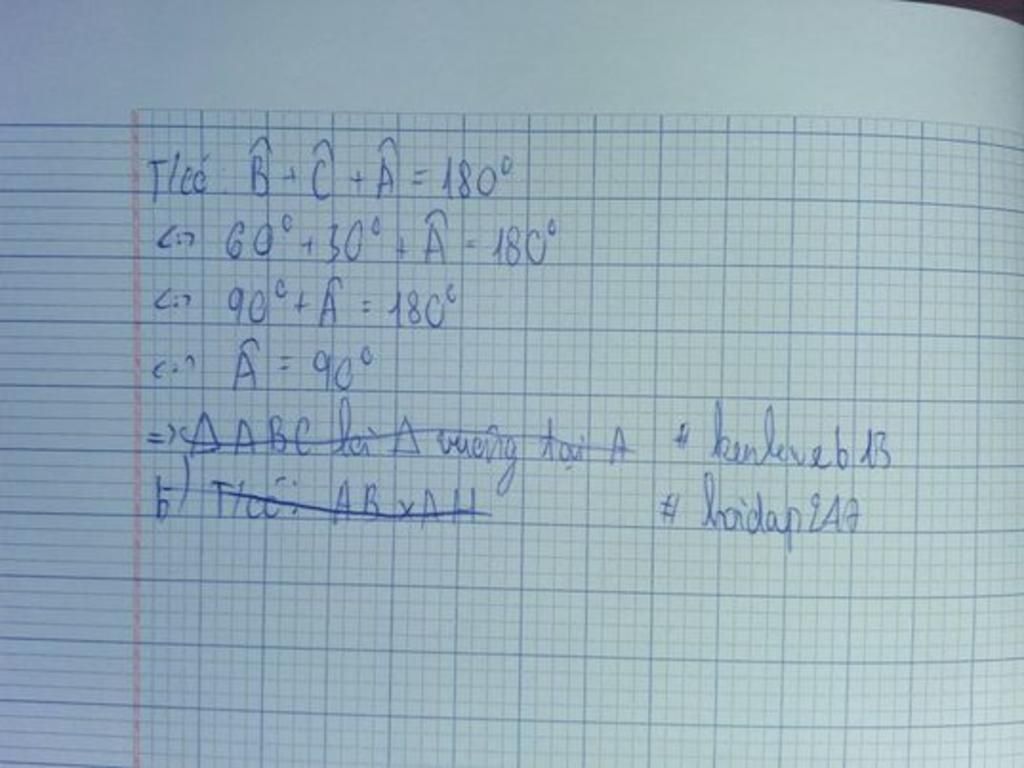 T/có: B̂ + Ĉ + Â = 180°
<=> 60° + 30° + Â = 180°
<=> 90° + Â = 180°
<=> Â = 90°
=> Δ ABC là Δ vuông tại A # kenlweb13
b) T/có: AB x AH # hoidap247